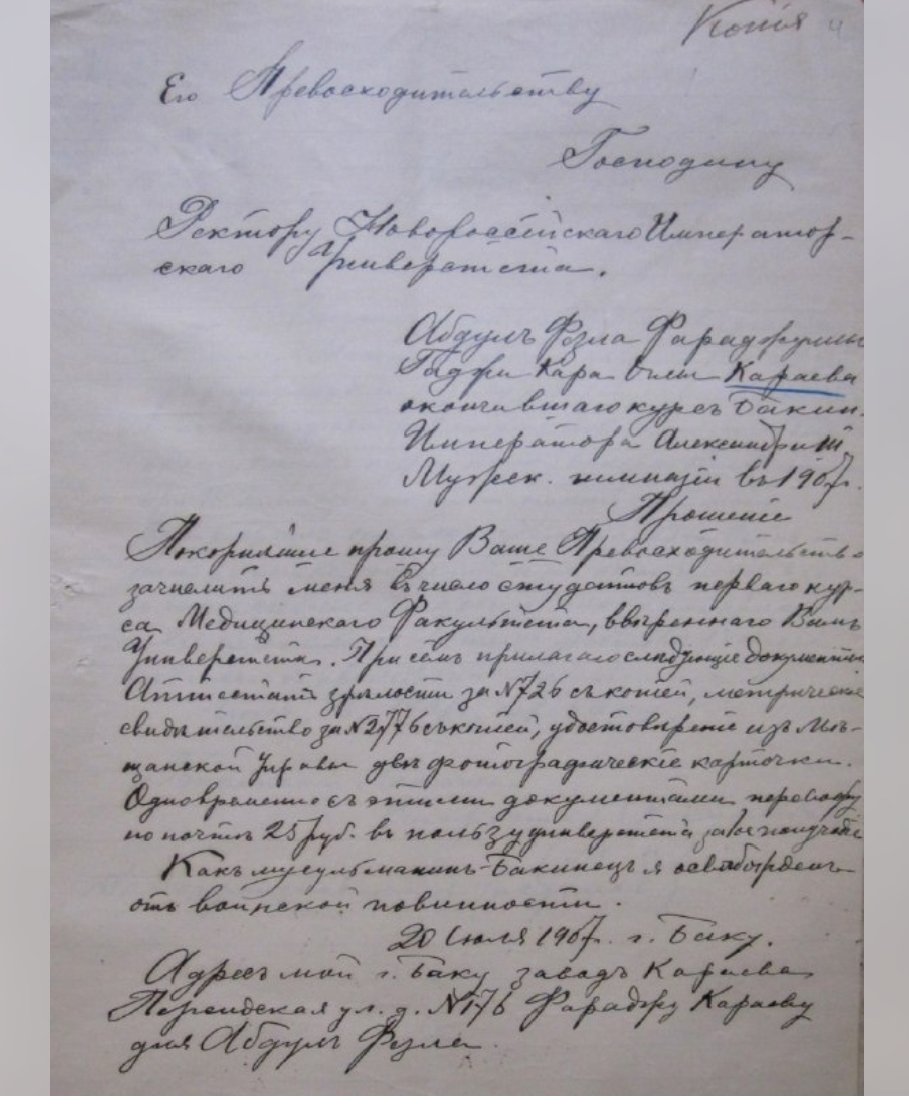 Копія 4
Его Превосходительству
Господину
Ректору Новороссійскаго Император-
скаго Университета.
Абдулъ Фзла Фараджуллы
Гаджи Кара оглы Караева
окончившаго курсъ Бакин.
Императора Александра III
Мужск. гимназіи въ 1907 г.
Прошеніе
Покорнѣйше прошу Ваше Превосходительство
зачислить меня въ число студентовъ перваго кур-
са Медицинскаго Факультета, ввѣреннаго Вамъ
Университета. При семъ прилагаю слѣдующіе документы
Аттестатъ зрѣлости за № 726 съ копіей, метрическое
свидѣтельство за № 2776 съ копіей, удостовѣреніе изъ Мѣ-
щанской Управы двѣ фотографическіе карточки.
Одновременно съ этими документами перевожу
по почтѣ 25 руб. въ пользу университета за
Какъ мусульманинъ-Бакинецъ я освобожденъ
отъ воинской повинности.
20 Іюля 1907 г. г. Баку.
Адресъ мой г. Баку заводъ Караева
Персидская ул. д. № 176 Фараджу Караеву
для Абдулъ Фзла